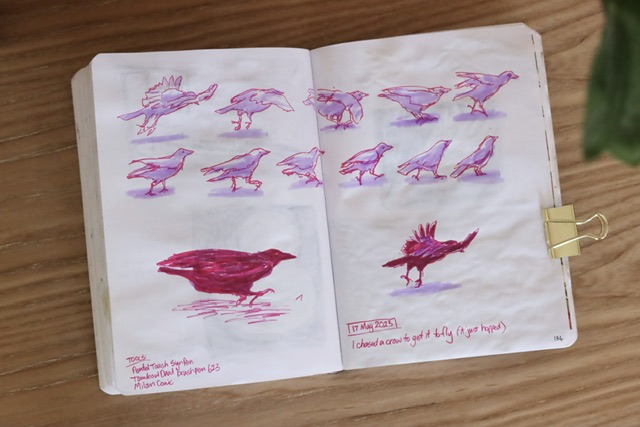 TOOLS:
Pentel Touch Sign Pen
Tombow Dual Brush pen 623
Milan Conic
17 May 2023
I chased a crow to get it to fly (it just hopped)